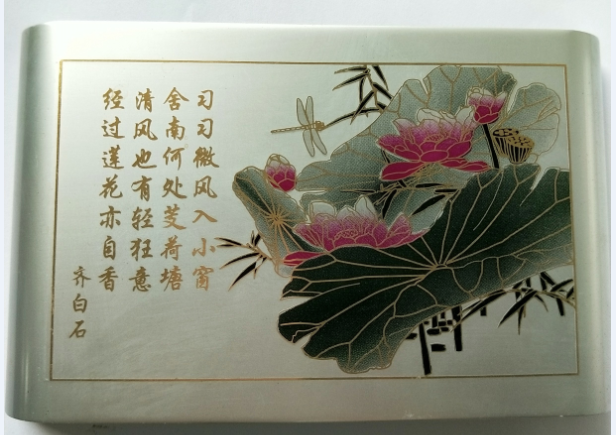 习习微风入小窗
舍南何处芰荷塘
清风也有轻狂意
经过莲花亦自香
齐白石